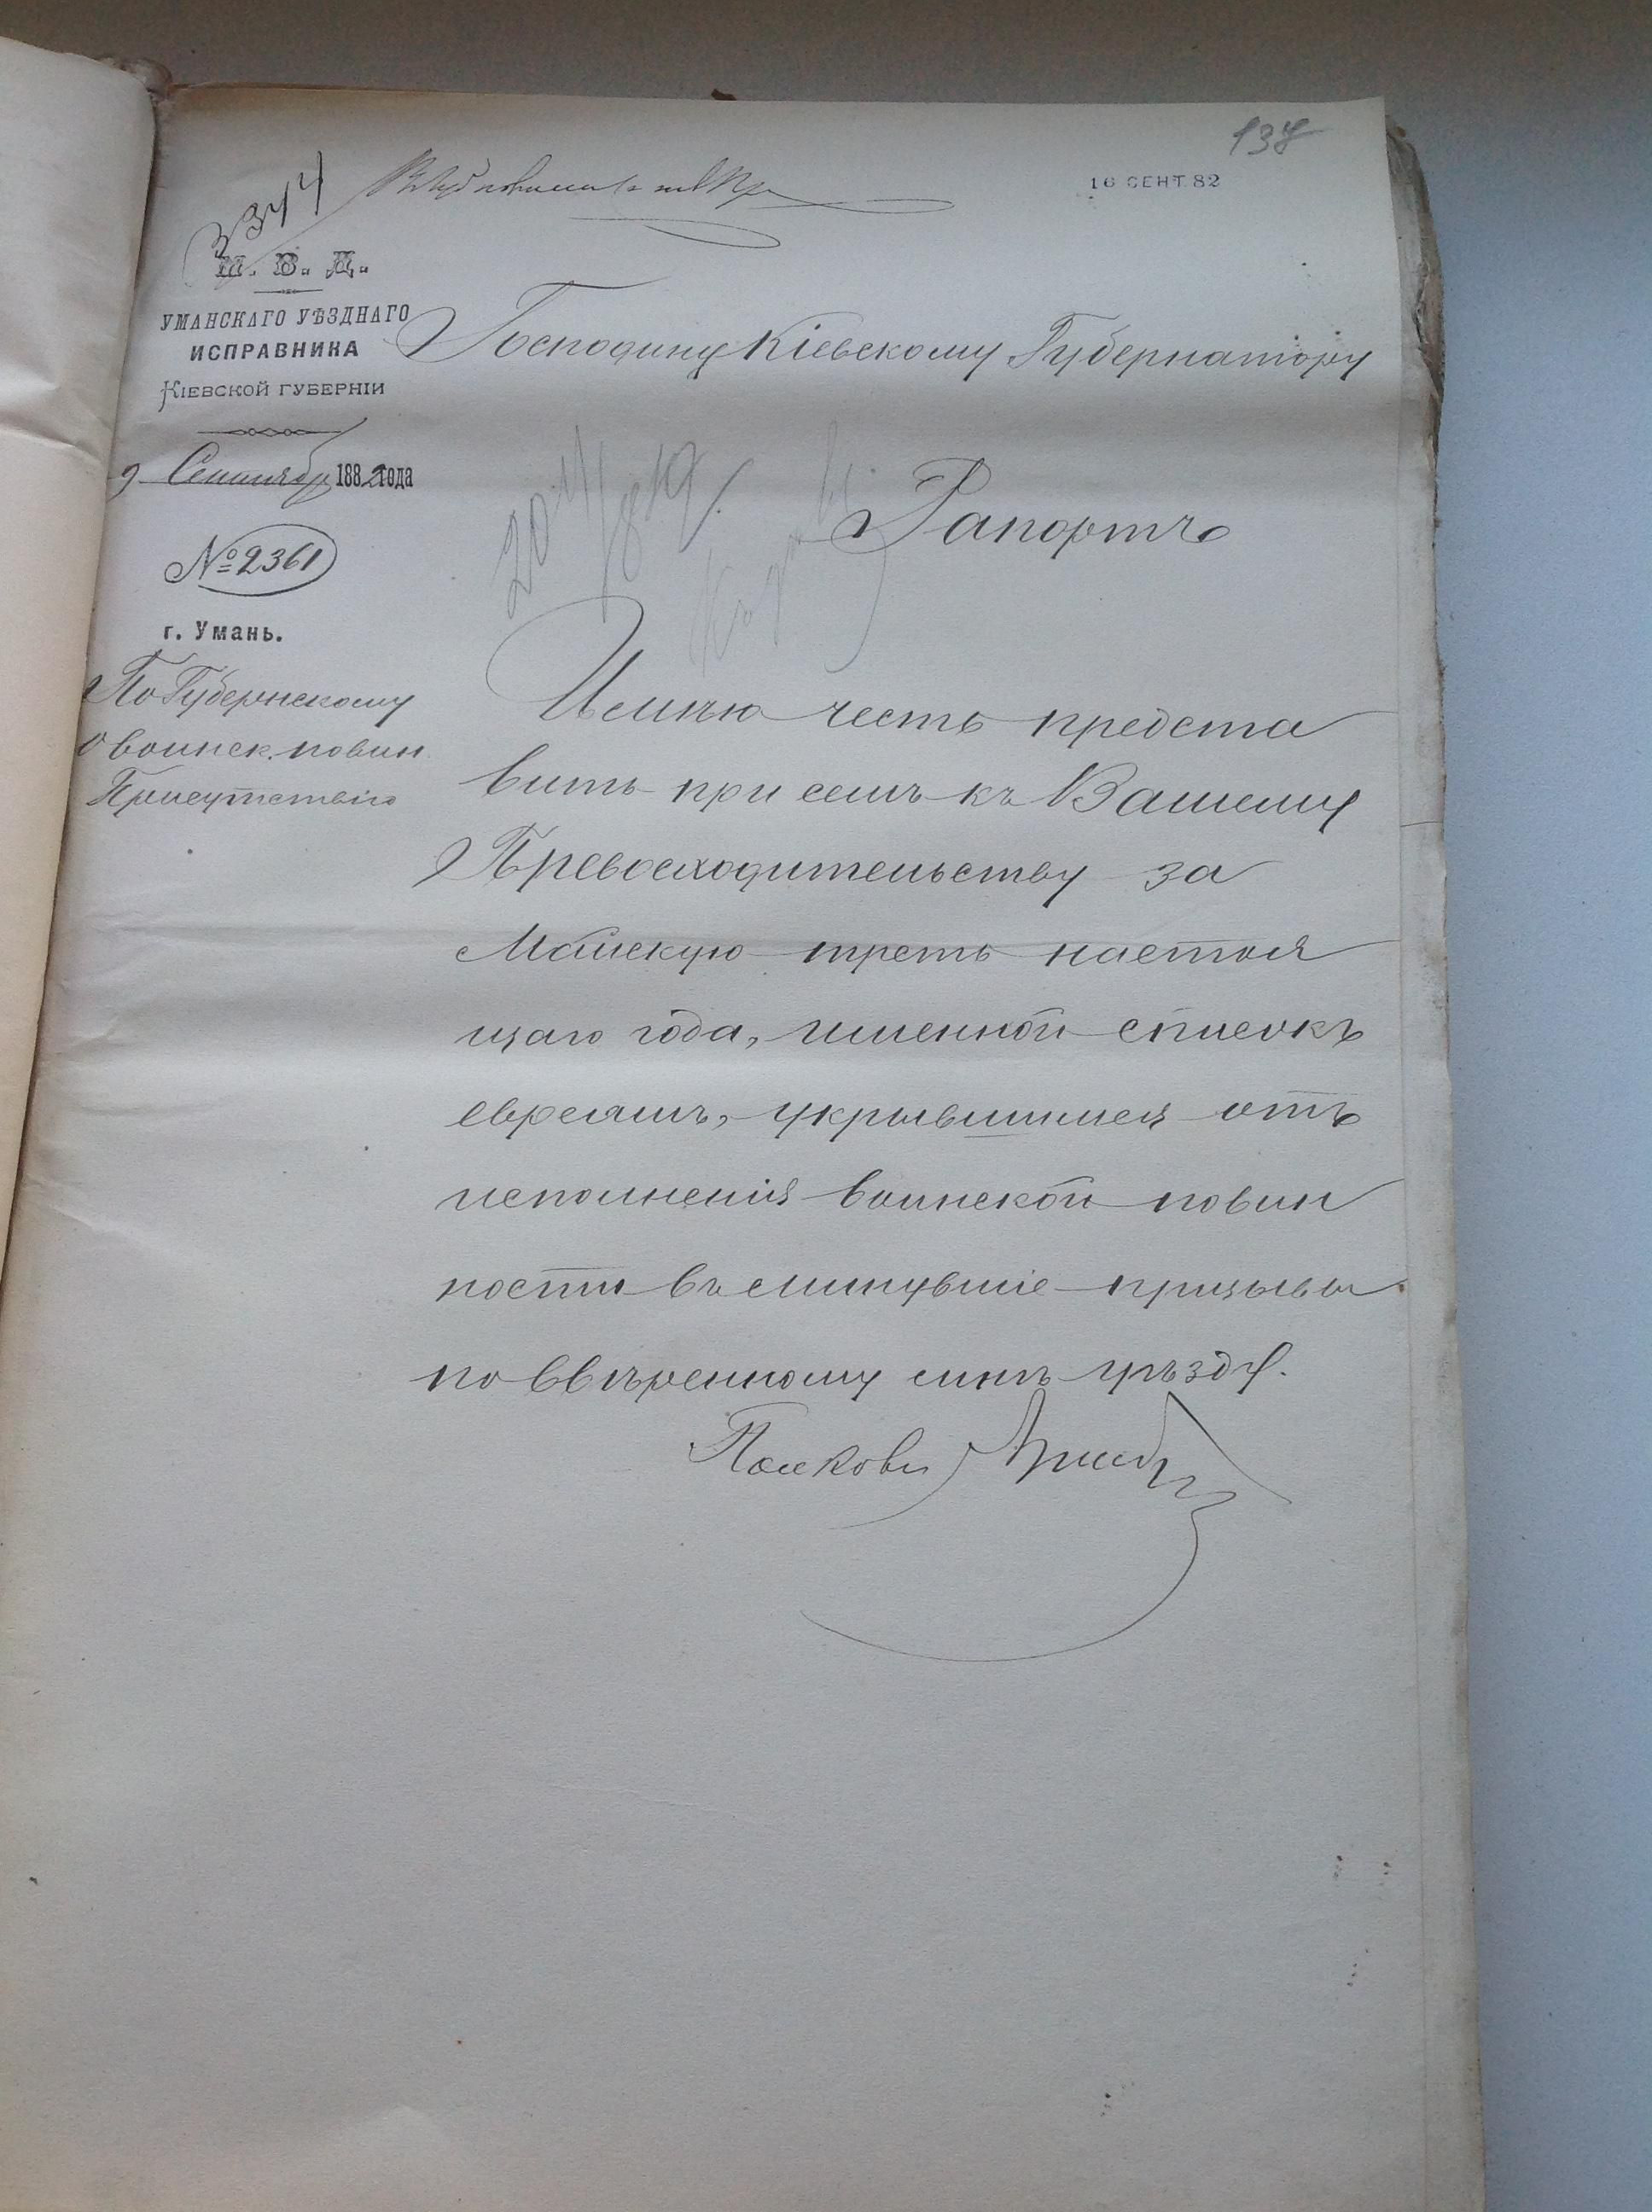 137
16 СЕНТ. 82
3344
М. В. Д.
УМАНСКАГО УѢЗДНАГО
ИСПРАВНИКА
КІЕВСКОЙ ГУБЕРНІИ
9 Сентября 1882 года
№ 2361
г. Умань.
По Губернскому
о воинск. повин.
Присутствію
Господину Кіевскому Губернатору
Рапортъ
Имѣю честь предста
вить при семъ къ Вашему
Превосходительству за
Майскую треть настоя
щаго года, именной списокъ
евреямъ, укрывшимся отъ
исполненія воинской повин
ности въ минувшіе призывы
по ввѣренному мнѣ уѣзду.
Полковн